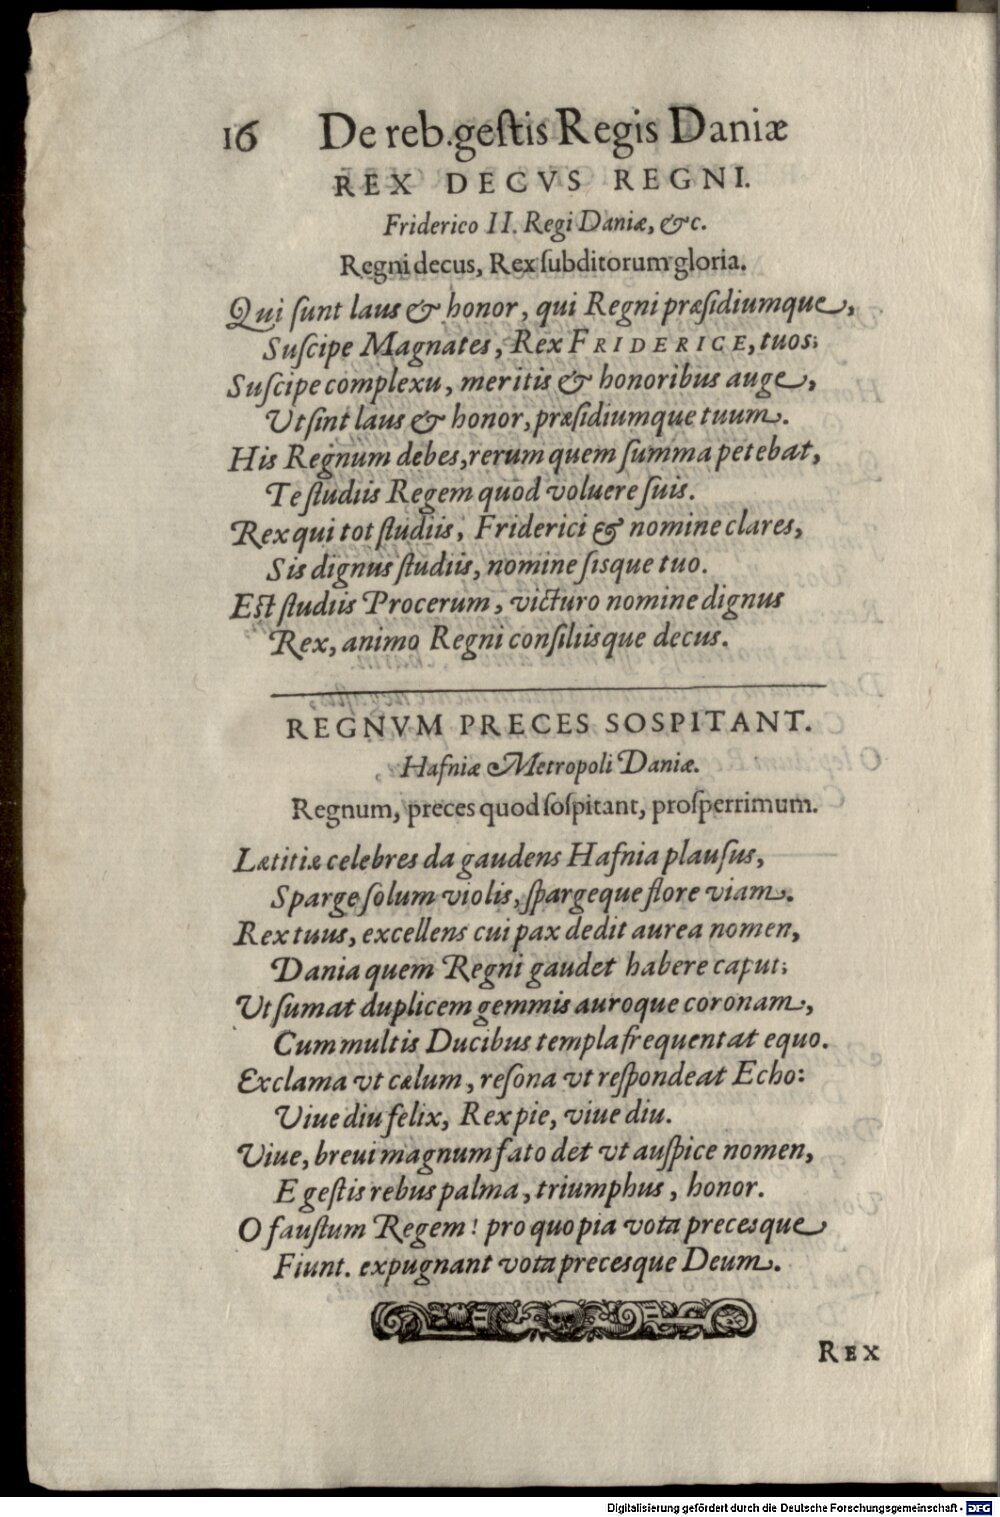 16 De reb. gestis Regis Daniæ
REX DECVS REGNI.
Friderico II. Regi Daniæ, &c.
Regni decus, Rex subditorum gloria.
Qui sunt laus & honor, qui Regni præsidiumque,
Suscipe Magnates, Rex FRIDERICE, tuos;
Suscipe complexu, meritis & honoribus auge,
Ut sint laus & honor, præsidiumque tuum.
His Regnum debes, rerum quem summa petebat,
Te studiis Regem quòd voluere suis.
Rex qui tot studiis, Friderici & nomine clares,
Sis dignus studiis, nomine sisque tuo.
Est studiis Procerum, victuro nomine dignus
Rex, animo Regni consiliisque decus.
REGNVM PRECES SOSPITANT.
Hafniæ Metropoli Daniæ.
Regnum, preces quod sospitant, prosperrimum.
Lætitiæ celebres da gaudens Hafnia plausus,
Sparge solum violis, spargeque flore viam.
Rex tuus, excellens cui pax dedit aurea nomen,
Dania quem Regni gaudet habere caput;
Ut sumat duplicem gemmis auroque coronam,
Cum multis Ducibus templa frequentat equo.
Exclama vt cælum, resona vt respondeat Echo:
Viue diu felix, Rex pie, viue diu.
Viue, breui magnum fato det vt auspice nomen,
E gestis rebus palma, triumphus, honor.
O faustum Regem! pro quo pia vota precesque
Fiunt. expugnant vota precesque Deum.
REX
Digitalisierung gefördert durch die Deutsche Forschungsgemeinschaft - DFG